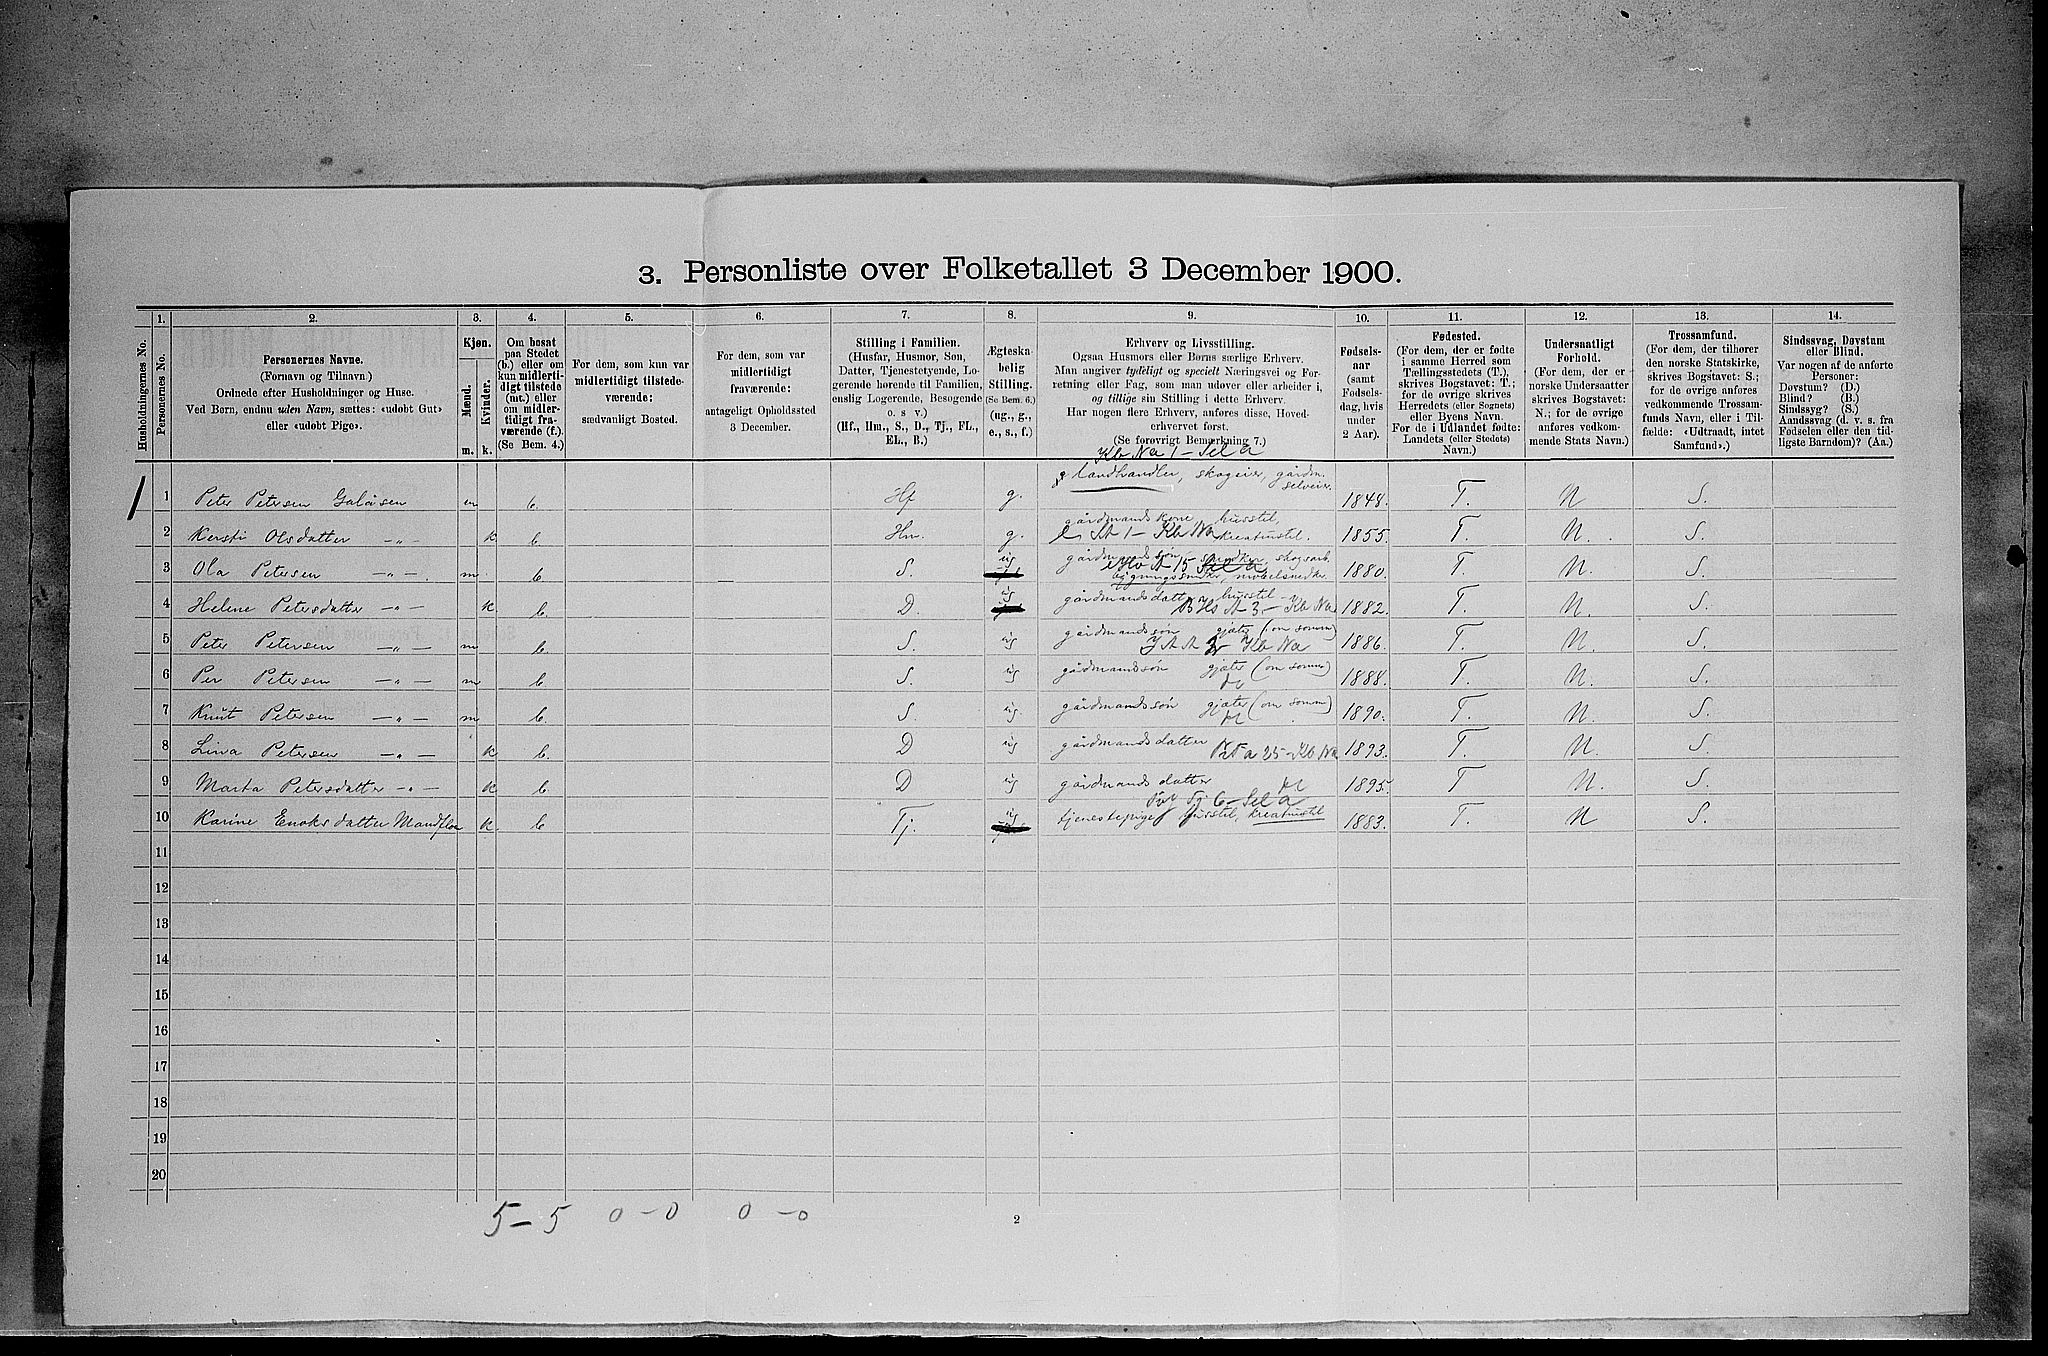 3. Personliste over Folketallet 3 December 1900.
Husholdningernes No.
1.
Personernes No.
2.
Personernes Navne.
(Fornavn og Tilnavn.)
Ordnede efter Husholdninger og Huse.
Ved Børn, endnu uden Navn, sættes: «udøbt Gut»
eller «udøbt Pige».
3.
Kjøn.
Mænd.
Kvinder.
m. k.
4.
Om bosat
paa Stedet
(b.) eller om
kun midlerti-
digt tilstede
(mt.) eller
om midler-
tidigt fra-
værende (f.).
(Se Bem. 4.)
5.
For dem, som kun var
midlertidigt tilstede-
værende:
sædvanligt Bosted.
6.
For dem, som var
midlertidigt
fraværende:
antageligt Opholdssted
3 December.
7.
Stilling i Familien.
(Husfar, Husmor, Søn,
Datter, Tjenestetyende, Lo-
gerende hørende til Familien,
enslig Logerende, Besøgende
o. s v.)
(Hf., Hm., S., D., Tj., FL.,
EL., B.)
8.
Ægteska-
belig
Stilling.
(Se Bem. 6.)
(ug., g.,
e., s., f.)
9.
Erhverv og Livsstilling.
Ogsaa Husmors eller Børns særlige Erhverv.
Man angiver tydeligt og specielt Næringsvei og For-
retning eller Fag, som man udøver eller arbeider i,
og tillige sin Stilling i dette Erhverv.
Har nogen flere Erhverv, anføres disse, Hoved-
erhvervet først.
(Se forøvrigt Bemærkning 7.)
10.
Fødsels-
aar
(samt
Fødsels-
dag, hvis
under
2 Aar).
11.
Fødested.
(For dem, der er fødte
i samme Herred som
Tællingsstedets (T.),
skrives Bogstavet: T.;
for de øvrige skrives
Herredets (eller Sognets)
eller Byens Navn.
For de i Udlandet fødte:
Landets (eller Stedets)
Navn.)
12.
Undersaatligt
Forhold.
(For dem, der er
norske Undersaatter
skrives Bogstavet:
N.; for de øvrige
anføres vedkom-
mende Stats Navn.)
13.
Trossamfund.
(For dem, der tilhører
den norske Statskirke,
skrives Bogstavet: S.;
for de øvrige anføres
vedkommende Trossam-
funds Navn, eller i Til-
fælde: «Udtraadt, intet
Samfund».)
14.
Sindssvag, Døvstum
eller Blind.
Var nogen af de anførte
Personer:
Døvstum? (D.)
Blind? (B.)
Sindssyg? (S.)
Aandssvag (d. v. s. fra
Fødselen eller den tid-
ligste Barndom)? (Aa.)
Kb Na 1 – Sel a
1 Peter Petersen Galåsen m b. Hf g. landhandler, skogeier, gårdm. selveier. 1848. T. N S.
2 Kersti Olsdatter — „ — k b. Hm. g. gårdmands kone husstel, kreaturstel. 1855. T. N. S.
3 Ola Petersen — „ — m. b. S. ug gårdmands søn snedker, skogsarb. bygningssnedker, møbelsnedker. 1880. T. N. S.
4 Helene Petersdatter — „ — k b. D. ug gårdmandsdatter husstel 1882. T. N. S.
5 Peter Petersen — „ — m b. S. ug gårdmandssøn gjæter (om somm) 1886. T. N. S.
6 Per Petersen — „ — m b. S. ug gårdmandssøn gjæter (om somm) 1888. T. N. S.
7 Knut Petersen — „ — m b. S. ug. gårdmandssøn gjæter (om somm) 1890. T. N. S.
8 Lina Petersen — „ — k b. D ug gårdmandsdatter 1893. T. N. S.
9 Marta Petersdatter — „ — k b. D ug gårdmands datter 1895. T N. S.
10 Karine Enoksdatter Mandfloe k. b Tj. ug tjenestepige husstel, kreaturstel 1883. T. N S.
11
12
13
14
15
16
17
18
19
20
5 – 5 0 – 0 0 – 0
2